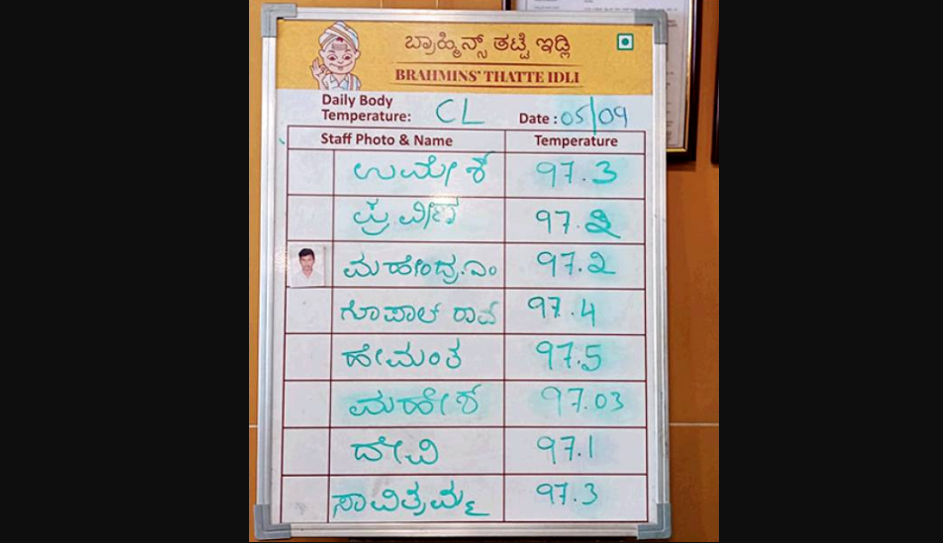 ಬ್ರಾಹ್ಮಿನ್ಸ್ ತಟ್ಟೆ ಇಡ್ಲಿ
BRAHMINS' THATTE IDLI
Daily Body
Temperature: CL Date : 05/09
Staff Photo & Name Temperature
ಉಮೇಶ್ 97.3
ಪ್ರವೀಣ 97.2
ಮಹೇಂದ್ರ.ಎಂ 97.2
ಗೋಪಾಲ್ ರಾವ್ 97.4
ಹೇಮಂತ 97.5
ಮಹೇಶ್ 97.03
ದೇವಿ 97.1
ಸಾವಿತ್ರಮ್ಮ 97.3